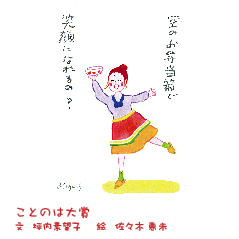 空のお弁当箱で
笑顔になれるの？
ことのは大賞
文 坪内希望子　絵 佐々木恵未